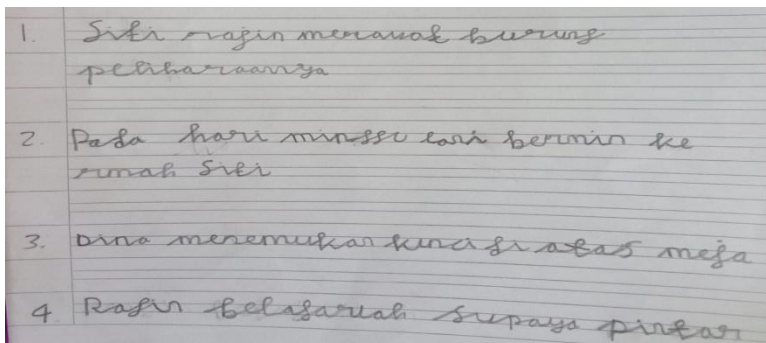 1. Siti rajin merawat burung
peliharaannya
2. Pada hari minggu lani bermin ke
rumah Siti
3. Dina menemukan kunci di atas meja
4 Rajin belajarlah supaya pintar